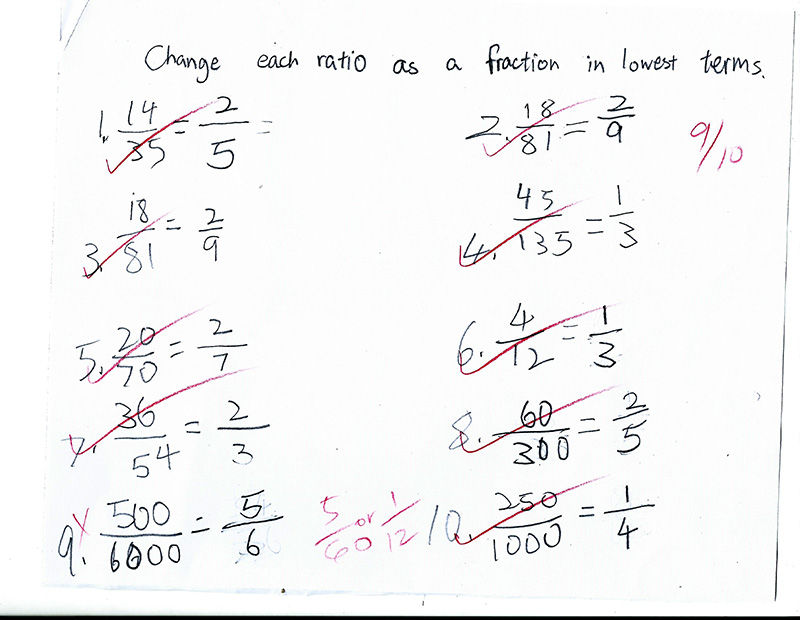 Change each ratio as a fraction in lowest terms.
1. 14/35 = 2/5 =
2. 18/81 = 2/9
9/10
3. 18/81 = 2/9
4. 45/135 = 1/3
5. 20/70 = 2/7
6. 4/12 = 1/3
7. 36/54 = 2/3
8. 60/300 = 2/5
9. 500/6000 = 5/6
5/60 or 1/12
10. 250/1000 = 1/4